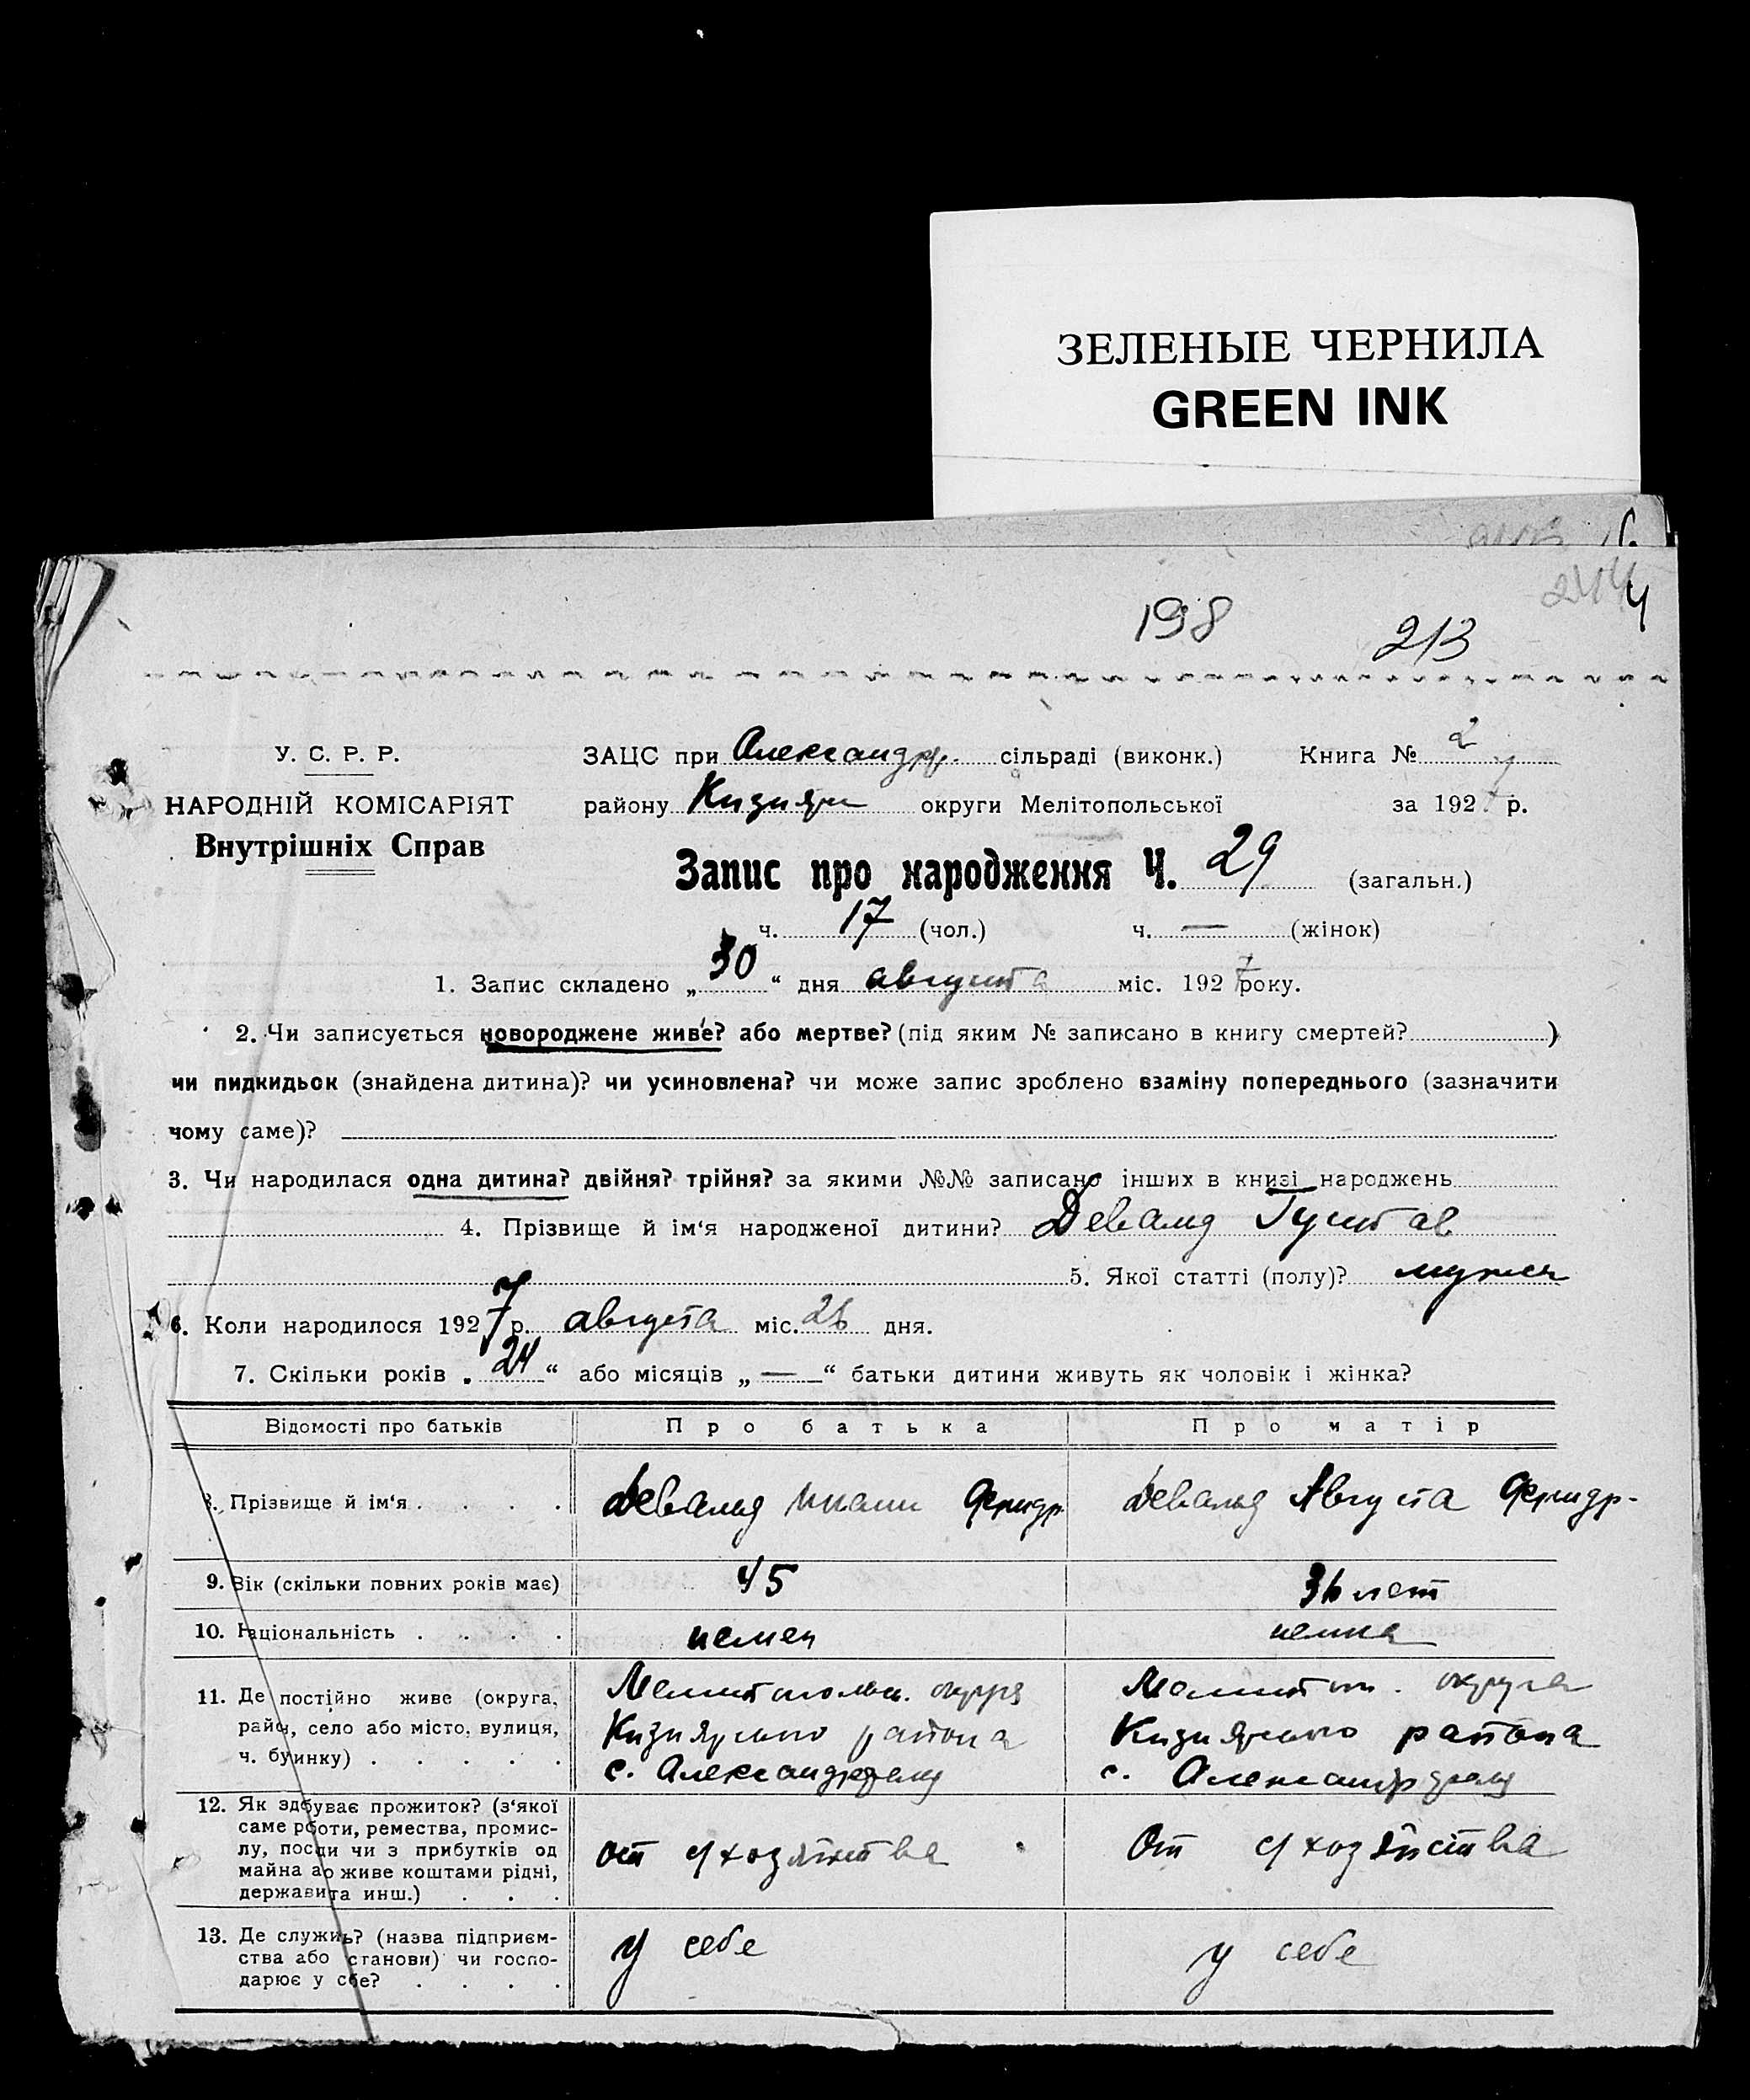 ЗЕЛЕНЫЕ ЧЕРНИЛА
GREEN INK
198
213
У. С. Р. Р.
НАРОДНІЙ КОМІСАРІЯТ
Внутрішніх Справ
ЗАЦС при Александр. сільраді (виконк.) Книга № 2
району Кизияр округи Мелітопольської за 1927 р.
Запис про народження Ч. 29 (загальн.)
ч. 17 (чол.) ч. — (жінок)
1. Запис складено „30“ дня августа міс. 1927 року.
2. Чи записується новороджене живе? або мертве? (під яким № записано в книгу смертей? )
чи пидкидьок (знайдена дитина)? чи усиновлена? чи може запис зроблено взаміну попереднього (зазначити
чому саме)?
3. Чи народилася одна дитина? двійня? трійня? за якими №№ записано інших в книзі народжень
4. Прізвище й ім‘я народженої дитини? Девалд Густав
5. Якої статті (полу)? мужск
6. Коли народилося 1927 р. августа міс. 26 дня.
7. Скільки років „24“ або місяців „—“ батьки дитини живуть як чоловік і жінка?
Відомості про батьків Про батька Про матір
8. Прізвище й ім‘я . . . . Девальд Фридр Девальд Августа Фридр-
9. Вік (скільки повних років має) 45 36 лет
10. Національність . . . . немец немка
11. Де постійно живе (округа, Мелитопольск. округа Мелитоп. округа
район, село або місто, вулиця, Кизиярского района Кизиярского района
ч. будинку) . . . . . с. Александрфельд с. Александрфельд
12. Як здобуває прожиток? (з‘якої
саме роботи, ремества, промис-
лу, посади чи з прибутків од от с/хозяйства От с/хозяйства
майна або живе коштами рідні,
держави та инш.) . . .
13. Де служить? (назва підприєм-
ства або установи) чи госпо- у себе у себе
дарює у себе? . . . .